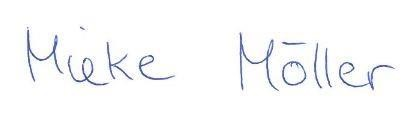 Mieke Möller